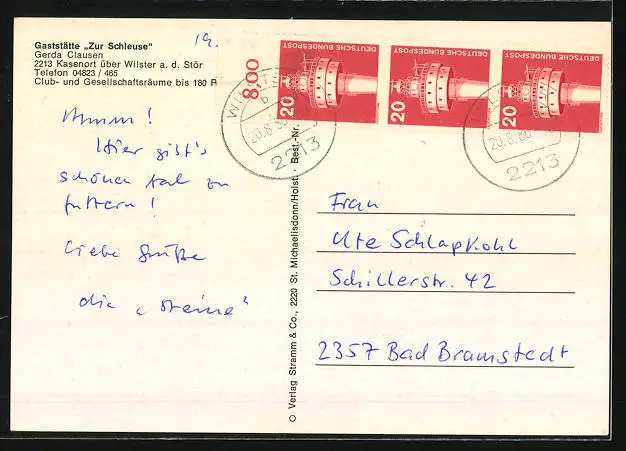 Gaststätte „Zur Schleuse“
Gerda Clausen
2213 Kasenort über Wilster a. d. Stör
Telefon 04823 / 465
Club- und Gesellschaftsräume bis 180 P
19.
Hmmm!
Hier gibt's
schönen Aal zu
futtern!
Liebe Grüße
die „Steine“
© Verlag Stramm & Co., 2220 St. Michaelisdonn/Holst. · Best.-Nr.
8,00
DEUTSCHE BUNDESPOST
20
DEUTSCHE BUNDESPOST
20
DEUTSCHE BUNDESPOST
20
b
20.8.86
2213
20.8.86
2213
Frau
Ute Schlapkohl
Schillerstr. 42
2357 Bad Bramstedt